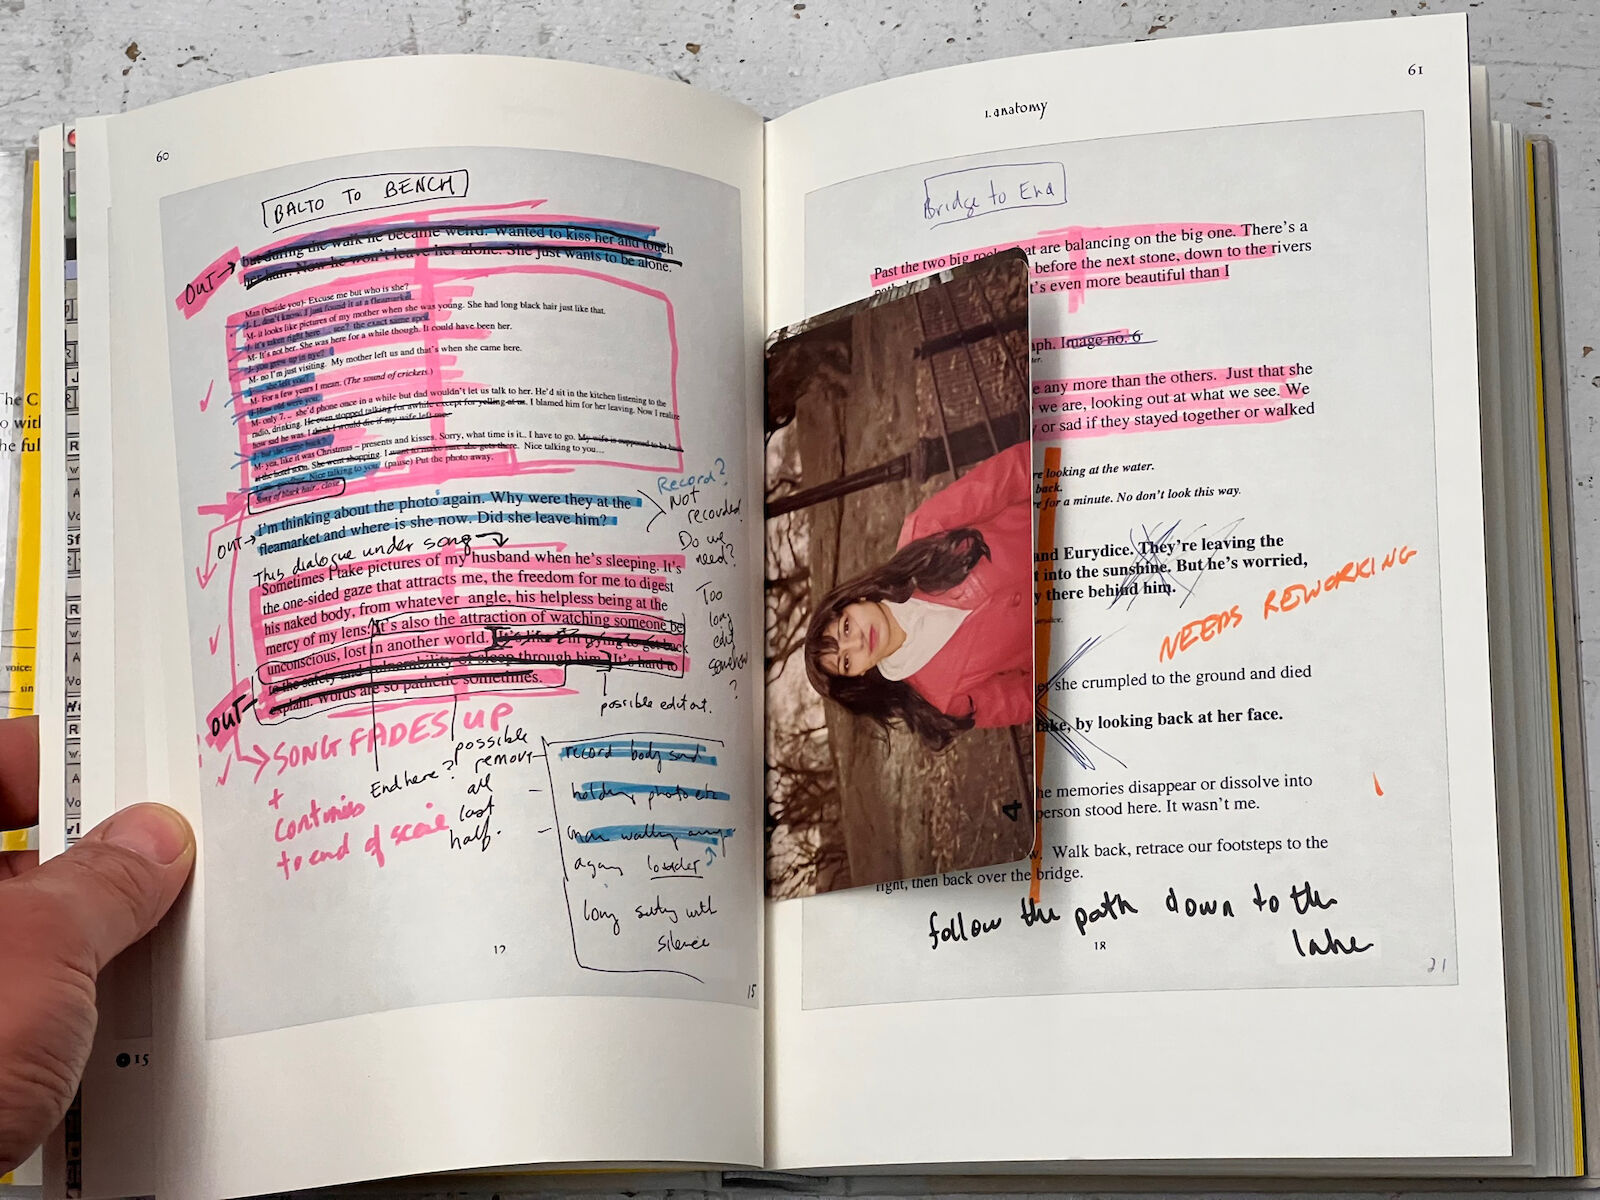 60
BALTO TO BENCH
OUT→
but during the walk he became weird. Wanted to kiss her and touch
her hair. Now he won't leave her alone. She just wants to be alone.
Man (beside you)- Excuse me but who is she?
J- I, don't know. I just found it at a fleamarket.
M- it looks like pictures of my mother when she was young. She had long black hair just like that.
J- it's taken right here ... see? the exact same spot.
M- It's not her. She was here for a while though. It could have been her.
J- you grow up in nyc?
M- no I'm just visiting. My mother left us and that's when she came here.
J- she left you?
M- For a few years I mean. (The sound of crickets.)
J- How old were you.
M- only 7. .. she'd phone once in a while but dad wouldn't let us talk to her. He'd sit in the kitchen listening to the
radio, drinking. He even stopped talking for awhile except for yelling at us. I blamed him for her leaving. Now I realize
how sad he was. I think I would die if my wife left me.
J- but she came back?
M- yea, like it was Christmas – presents and kisses. Sorry, what time is it.. I have to go. My wife is supposed to be back
at the hotel soon. She went shopping. I want to make sure she gets there. Nice talking to you...
goodbye. Nice talking to you. (pause) Put the photo away.
Song of black hair.. close
Record?
Not
recorded!
Do we
need?
OUT→
I'm thinking about the photo again. Why were they at the
fleamarket and where is she now. Did she leave him?
This dialogue under song
Sometimes I take pictures of my husband when he's sleeping. It's
the one-sided gaze that attracts me, the freedom for me to digest
his naked body, from whatever angle, his helpless being at the
mercy of my lens. It's also the attraction of watching someone be
unconscious, lost in another world. It's like I'm trying to get back
to the safety and vulnerability of sleep through him. It's hard to
explain. Words are so pathetic sometimes.
Too
long
edit
somehow
?
OUT
possible edit out.
SONG FADES UP
+
continues
to end of scene
End here?
possible
remove
all
last
half.
record body sound
holding photo etc
man walking away
again louder
long sitting with
silence
17
15
15
61
1. anatomy
Bridge to End
Past the two big rocks that are balancing on the big one. There's a
before the next stone, down to the rivers
it's even more beautiful than I
Image no. 6
any more than the others. Just that she
we are, looking out at what we see. We
or sad if they stayed together or walked
looking at the water.
back.
for a minute. No don't look this way.
and Eurydice. They're leaving the
into the sunshine. But he's worried,
there behind him.
NEEDS REWORKING
she crumpled to the ground and died
by looking back at her face.
memories disappear or dissolve into
person stood here. It wasn't me.
Walk back, retrace our footsteps to the
right, then back over the bridge.
4
follow the path down to the
lake
18
21